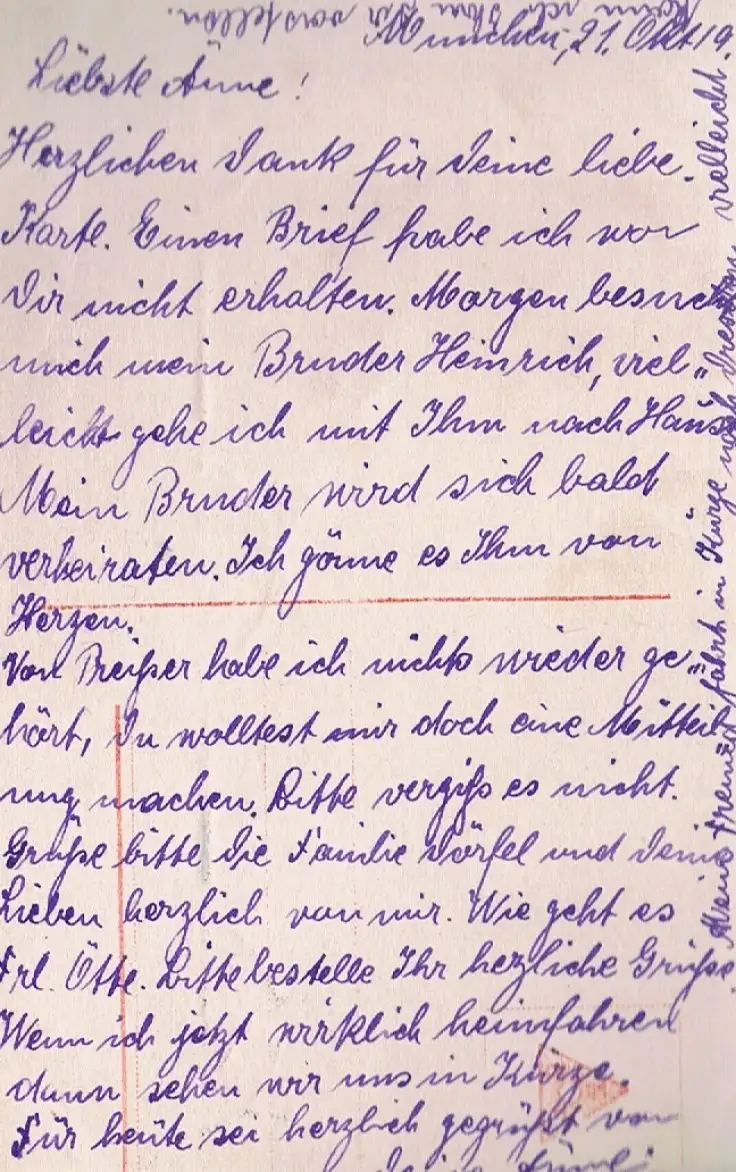 München, 21. Okt 19.
Liebste Änne!
Herzlichen Dank für Deine liebe
Karte. Einen Brief habe ich von
Dir nicht erhalten. Morgen besucht
mich mein Bruder Heinrich, viel„
leicht gehe ich mit Ihm nach Haus
Mein Bruder wird sich bald
verheiraten. Ich gönne es Ihm von
Herzen.
Von Preißer habe ich nichts wieder ge„
hört, Du wolltest mir doch eine Mitteil
ung machen. Bitte vergiß es nicht.
Grüße bitte die Familie Dörfel und Deine
Lieben herzlich von mir. Wie geht es
Frl. Otte. Bitte bestelle Ihr hezliche Grüße.
Wenn ich jetzt wirklich heimfahren
dann sehen wir uns in Kürze.
Für heute sei herzlich gegrüßt von
Meine Freundin fährt in Kürze nach Dresden, vielleicht
kann sich Dir vorstellen.